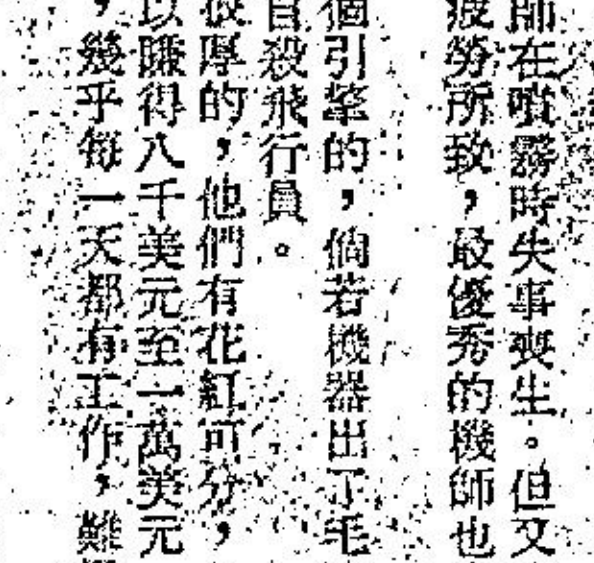 師在噴霧時失事喪生。但又
疲勞所致，最優秀的機師也
個引擎的，倘若機器出了毛
自殺飛行員。
很厚的，他們有花紅可分，
以賺得八千美元至一萬美元
，幾乎每一天都有工作，難